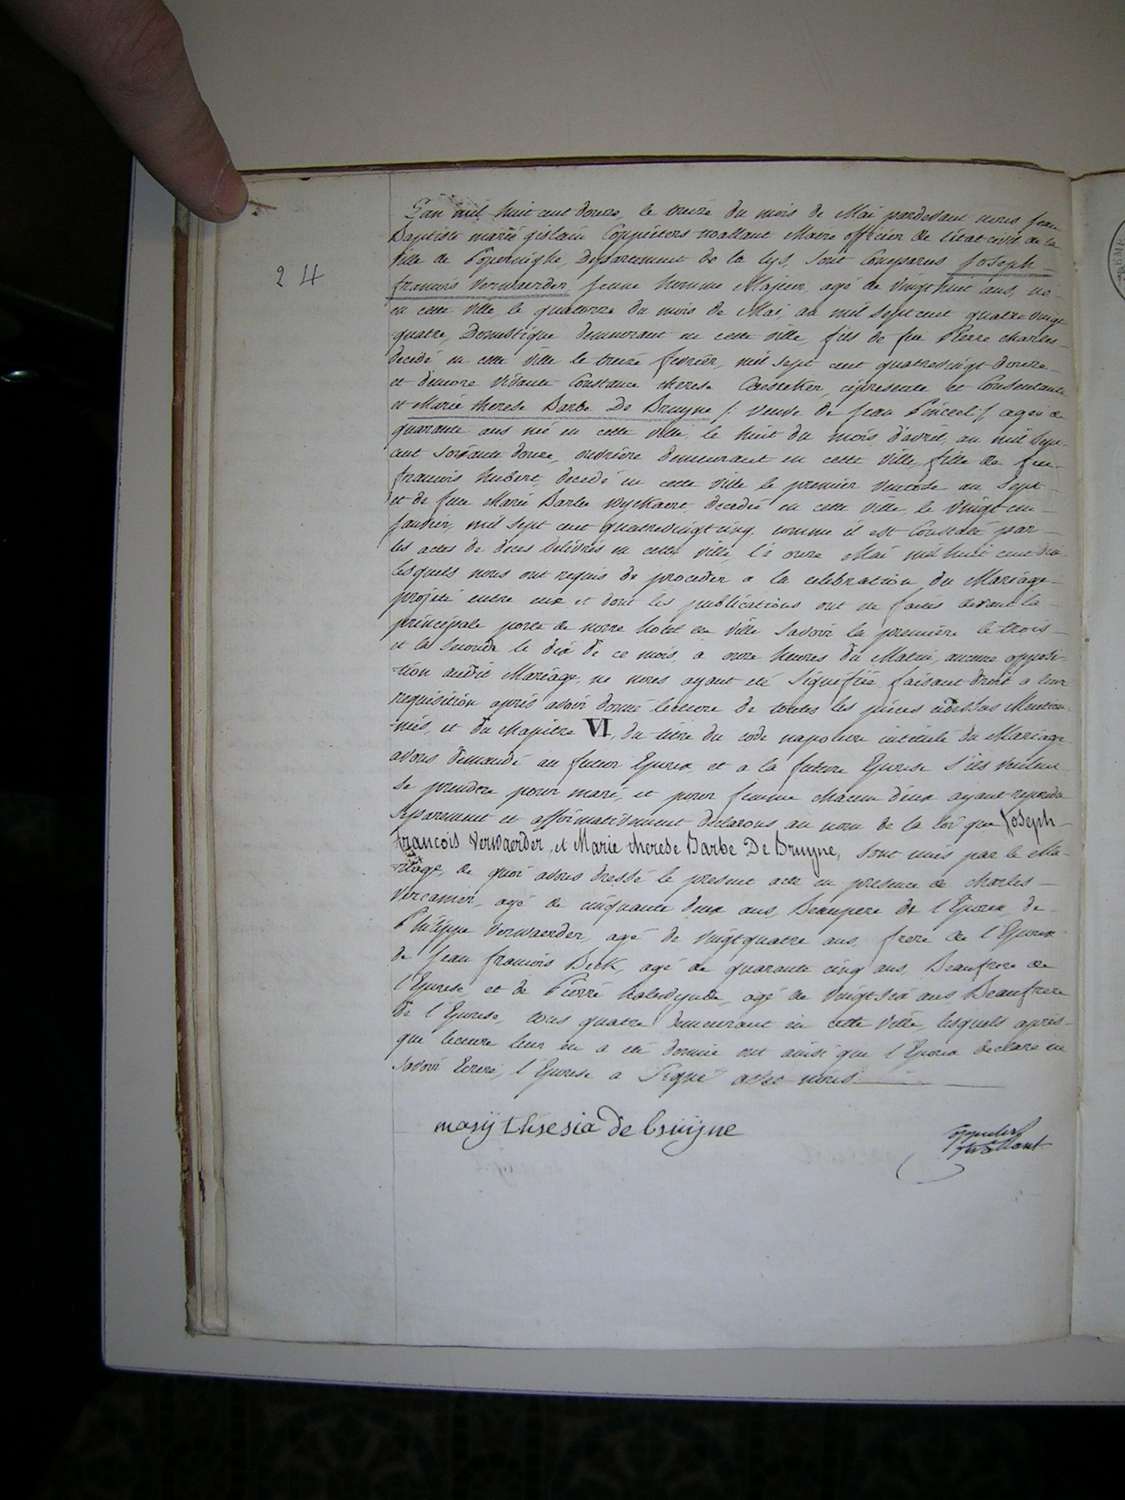 24
L'an mil huit cent douze, le treize du mois de Mai pardevant nous Jean
Baptiste marie gislain Coppieters wallant Maire officier de l'état civil de la
Ville de Poperinghe, Departement de la Lys, sont comparus Joseph
francois Verwaerder, jeune homme Majeur, agé de vingt huit ans, né
en cette ville le quatorze du mois de Mai, an mil sept cent quatre vingt
quatre, Domestique demeurant en cette ville, fils de feu Pierre charles
decédé en cette ville le treize fevrier, mil sept cent quatrevingt douze
et d'encore vivante Constance therese, ciprésente et Consentante
et Marie therese Barbe De Bruyne /: veuve de Jean Pinceel :/ agée de
quarante ans née en cette ville, le huit du mois d'avril, an mil sept
cent soixante douze, ouvrière demeurant en cette ville, fille de feu
francois hubert, decédé en cette ville le premier an sept
et de feue Marie Barbe Wyckaert decédée en cette ville, le vingt un
Janvier, mil sept cent quatrevingt cinq, comme il est Constaté par
les actes de deces delivrés en cette ville, le onze Mai mil huit cent douze
lesquels nous ont requis de proceder a la celebration du Mariage
projeté entre eux et dont les publications ont été faites devant la
principale porte de notre hotel de ville savoir la première le trois
et la seconde le dix de ce mois, à onze heures du Matin, aucune opposi-
tion audit Mariage, ne nous ayant été Signefiée faisant droit a leur
requisition après avoir donné lecture de toutes les pièces cidessus Mention-
nés, et du chapitre VI, du titre du code napoleon intitulé du Mariage
avons demandé au futur Epoux, et a la future Epouse s'ils veulent
se prendre pour mari, et pour femme chacun d'eux ayant repondu
separement et affirmativement declarons au nom de la loi que Joseph
francois Verwaerder, et Marie therese Barbe De Bruyne, sont unis par le Ma-
riage, de quoi avons dressé le present acte en presence de charles
Vercamer, agé de cinquante deux ans, Beaupere de l'Epoux, de
Philippe Verwaerder, agé de vingtquatre ans, frere de l'Epoux
de Jean francois Beck, agé de quarante cinq ans, Beaufrere de
l'Epouse, et de Pierre agé de vingt six ans Beaufrere
de l'Epouse, tous quatre demeurant en cette ville, lesquels après
que lecture leur en a été donnée ont ainsi que l'Epoux declaré ne
savoir Ecrire, l'Epouse a Signé avec nous.
marij thresia de bruijne
Coppieters
Wallant